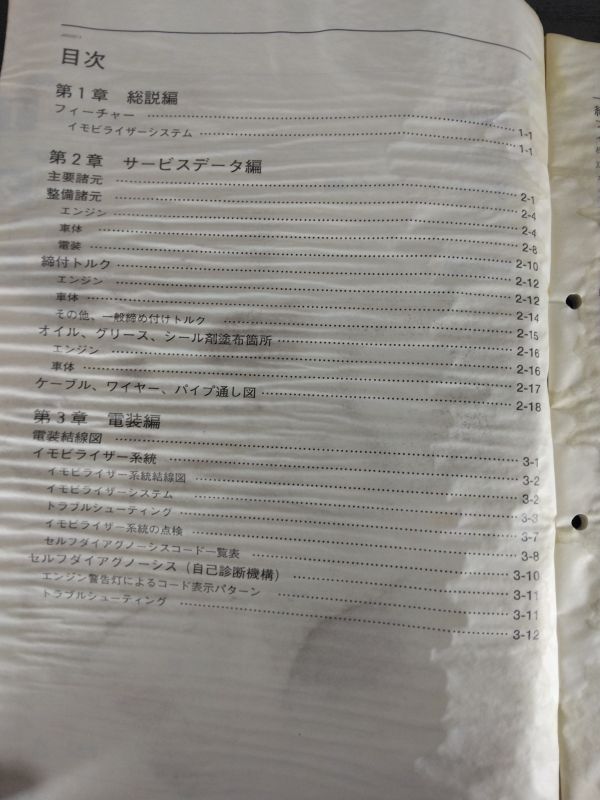 目次
第1章 総説編
フィーチャー 1-1
イモビライザーシステム 1-1
第2章 サービスデータ編
主要諸元 2-1
整備諸元 2-4
エンジン 2-4
車体 2-8
電装 2-10
締付トルク 2-12
エンジン 2-12
車体 2-14
その他、一般締め付けトルク 2-15
オイル、グリース、シール剤塗布箇所 2-16
エンジン 2-16
車体 2-17
ケーブル、ワイヤー、パイプ通し図 2-18
第3章 電装編
電装結線図 3-1
イモビライザー系統 3-2
イモビライザー系統結線図 3-2
イモビライザーシステム 3-3
トラブルシューティング 3-7
イモビライザー系統の点検 3-8
セルフダイアグノーシスコード一覧表 3-10
セルフダイアグノーシス（自己診断機構） 3-11
エンジン警告灯によるコード表示パターン 3-11
トラブルシューティング 3-12